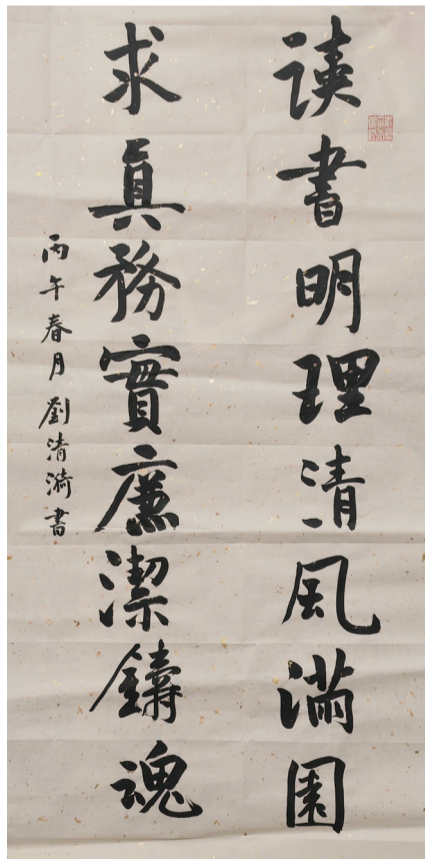 读書明理清風滿園
求真務實廉潔鑄魂
丙午春月劉清漪書